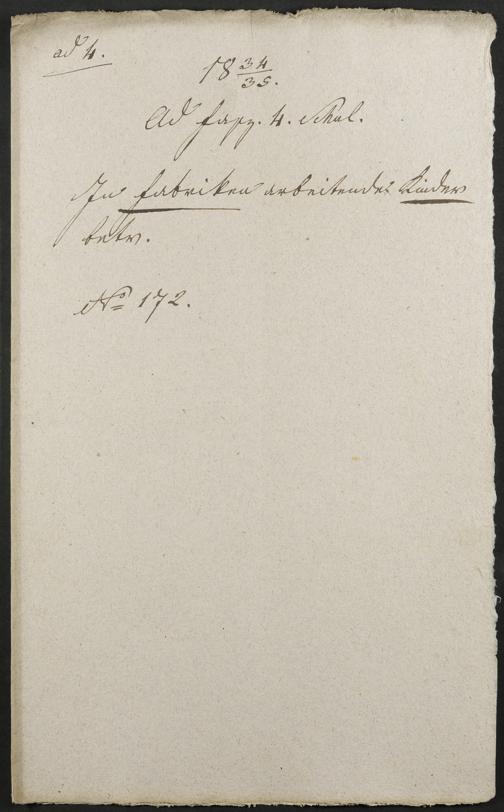 ad 4.
18 34/35.
Ad fasz. 4. Schul.
In Fabriken arbeitende Kinder
betr.
No 172.